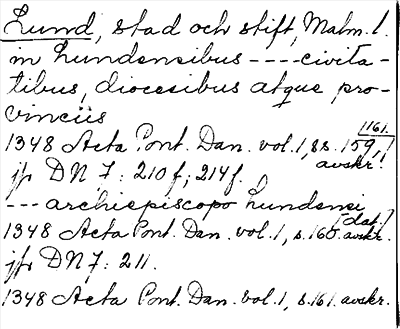 Lund, stad och stift, Malm. l.
in Lundensibus ---- civita-
tibus, diocesibus atque pro-
vinciis
1348 Acta Pont. Dan. vol. 1, ss. 159, 161.
avskr.
jfr DN 7: 210 f; 214 f.
--- archiepiscopo Lundensi
[dat.]
1348 Acta Pont. Dan. vol. 1, s. 160. avskr.
jfr DN 7: 211.
1348 Acta Pont. Dan. vol. 1, s. 161. avskr.